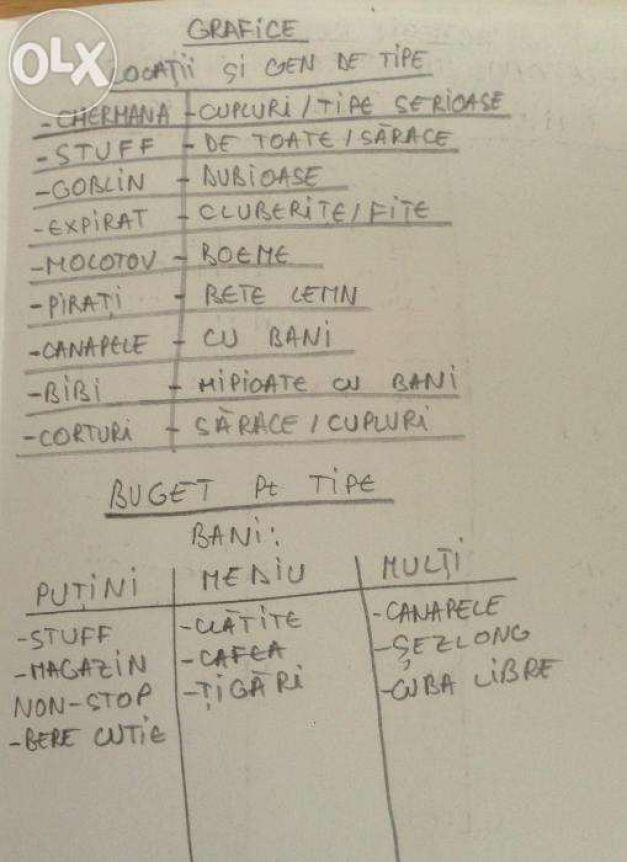 OLX
GRAFICE
LOCAȚII ȘI GEN DE TIPE
-CHERHANA - CUPLURI / TIPE SERIOASE
-STUFF - DE TOATE / SĂRACE
-GOBLIN - DUBIOASE
-EXPIRAT - CLUBERIȚE / FIȚE
-MOLOTOV - BOEME
-PIRAȚI - BETE LEMN
-CANAPELE - CU BANI
-BIBI - HIPIOATE CU BANI
-CORTURI - SĂRACE / CUPLURI
BUGET Pt TIPE
BANI:
PUȚINI | MEDIU | MULȚI
-STUFF -CLĂTITE -CANAPELE
-MAGAZIN -CAFEA -ȘEZLONG
NON-STOP -ȚIGĂRI -CUBA LIBRE
-BERE CUTIE